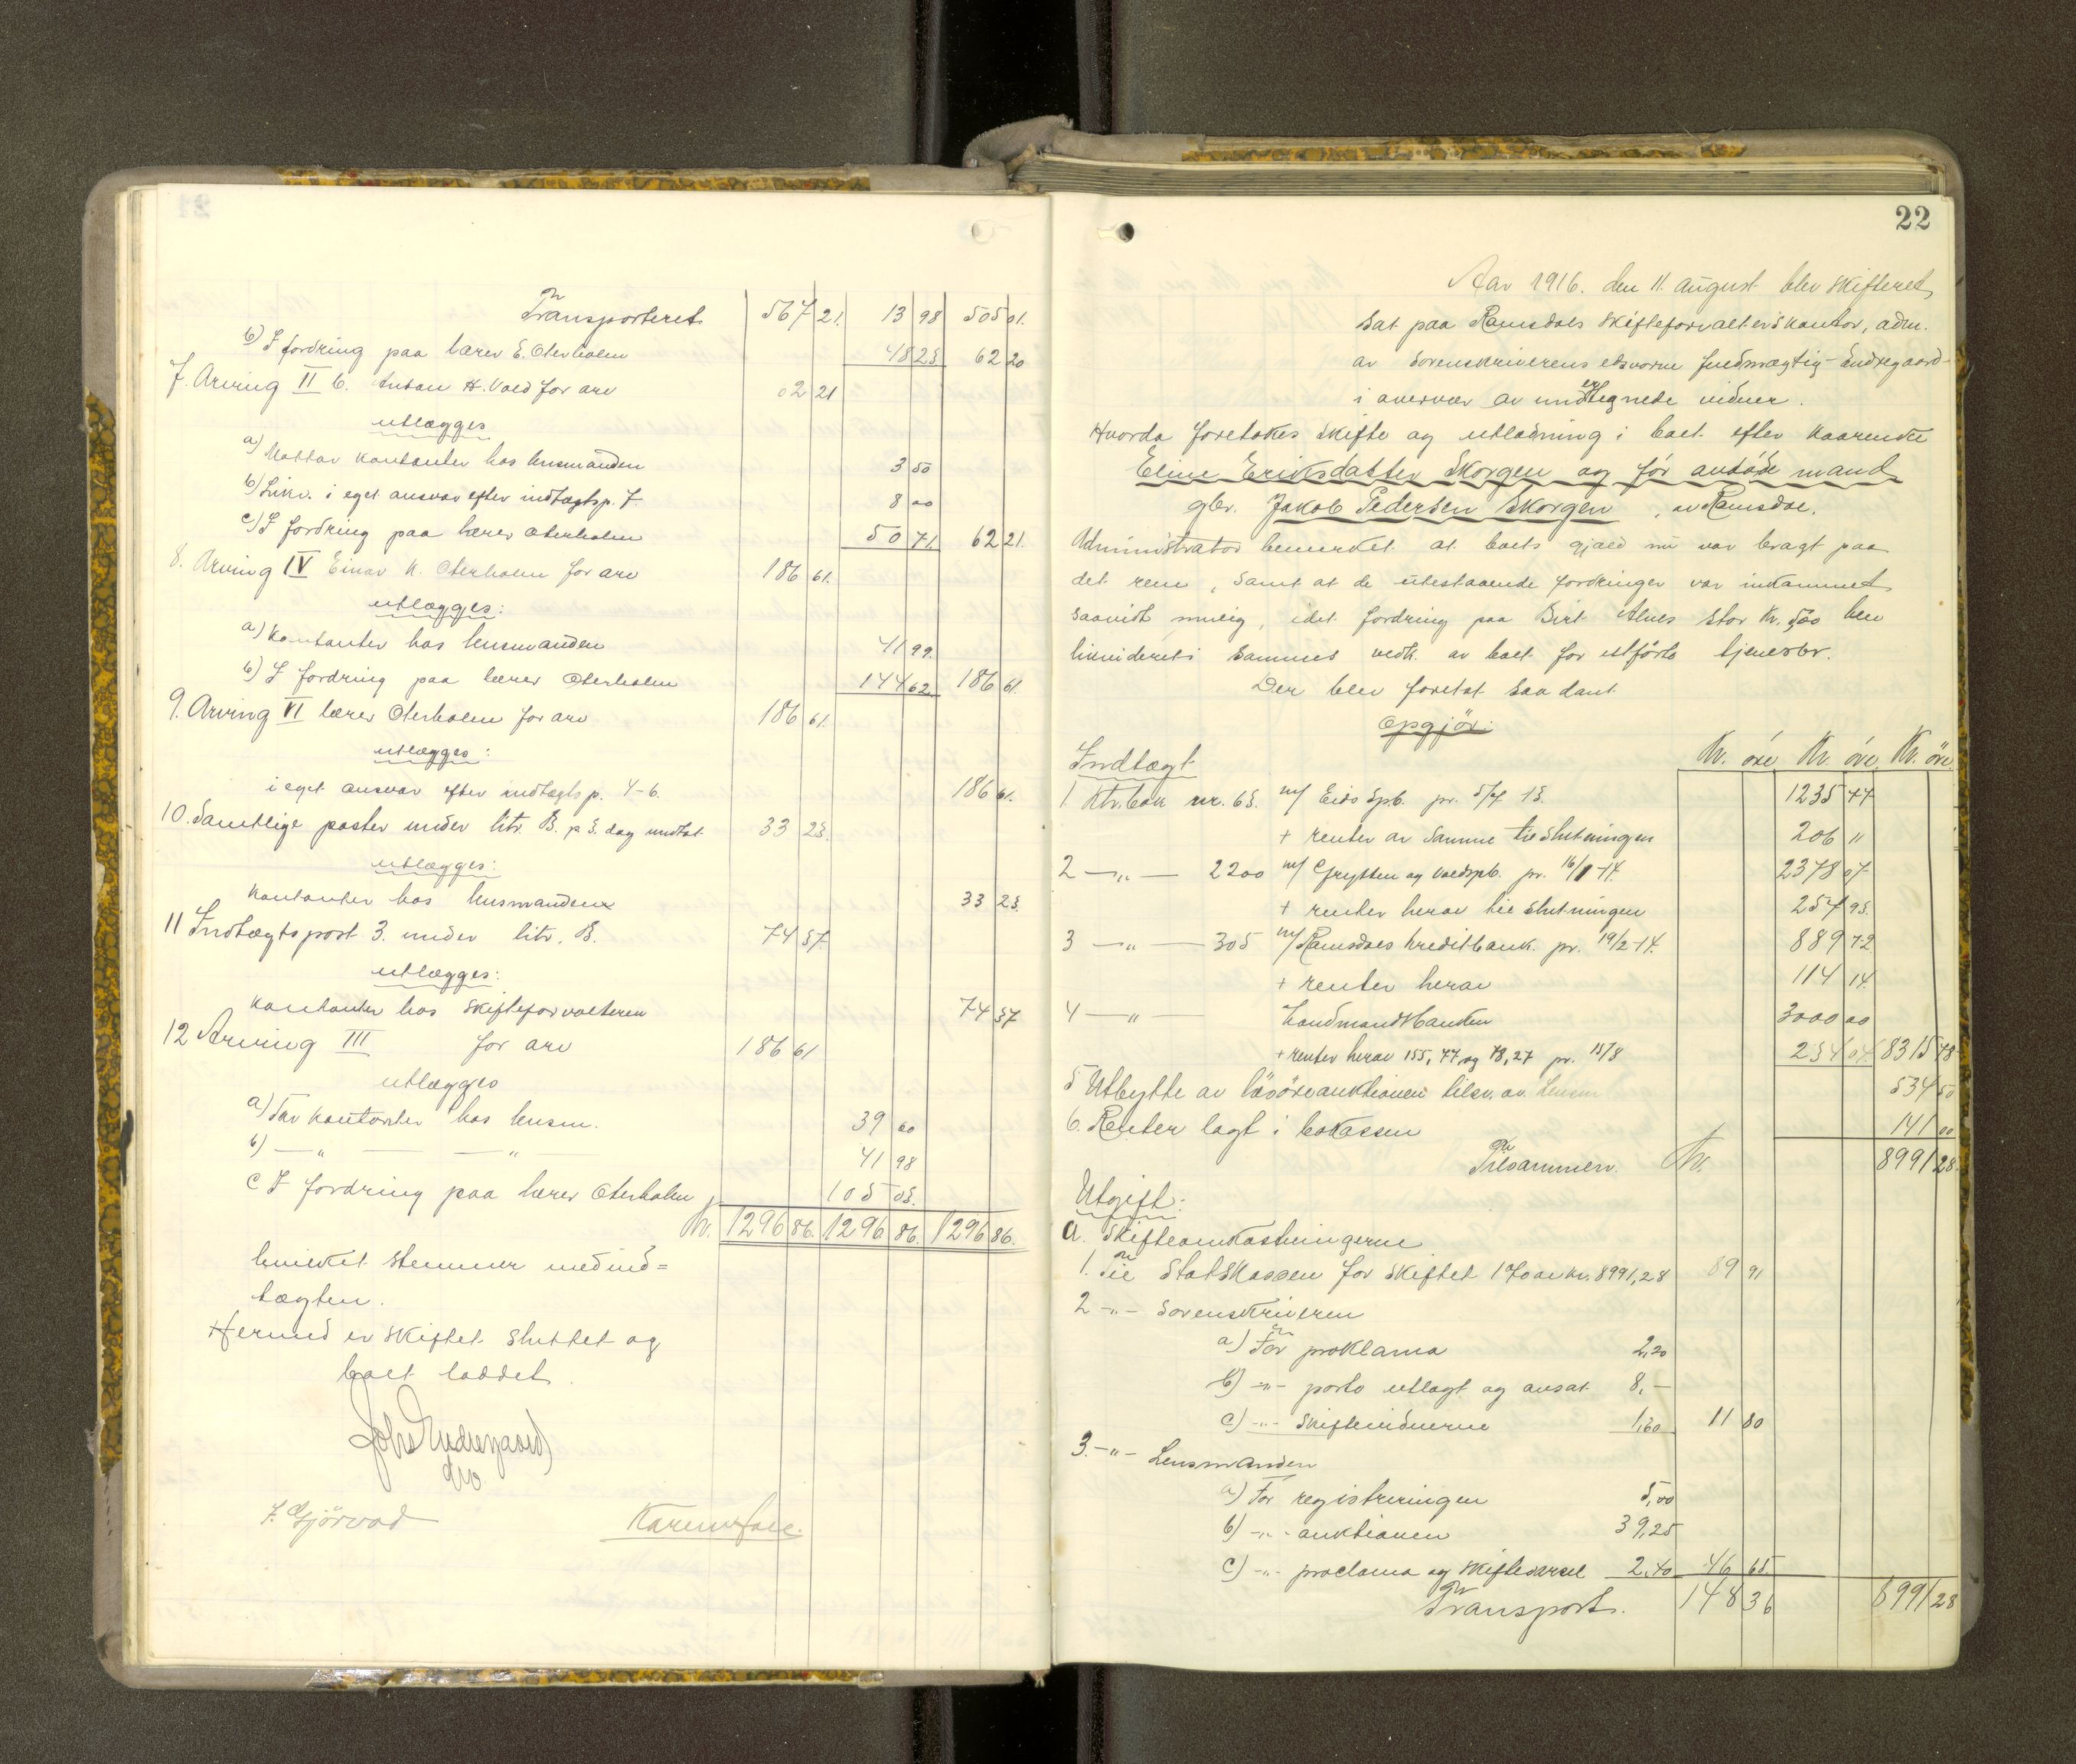 Transporteret 567 21. 13 98 505 01.
b) I fordring paa lærer E. Oterholm 48 23 62 20
7. Arving II b. Anton H. Vold for arv 62 21
utlægges
a) Mottar kontanter hos lensmanden 3 50
b) Likv. i eget ansvar efter indtægtsp. 7. 8 00
c) I fordring paa lærer Oterholm 50 71. 62 21.
8. Arving IV Einar K. Oterholm for arv 186 61.
utlægges:
a) Kontanter hos lensmanden 41 99.
b) I fordring paa lærer Oterholm 144 62 186 61.
9. Arving VI lærer Oterholm for arv 186 61.
utlægges:
i eget ansvar efter indtægtsp. 4-6. 186 61.
10. Samtlige poster under litr. B. p 3. dog undtat 33 23.
utlægges:
Kontanter hos lensmanden 33 23.
11 Indtægtspost 3. under litr. B. 74 37.
utlægges:
Kontanter hos skifteforvalteren 74 37
12 Arving III for arv 186 61
utlægges
a) Tar kontanter hos lensm. 39 60
b) — " — — " — 41 98
c I fordring paa lærer Oterholm 105 03.
Kr. 1296 86. 1296 86. 1296 86.
hvilket stemmer med ind=
tægten.
Hermed er skiftet sluttet og
boet loddet.
Johs Endregaard
J. Gjörvad Karen
22
Aar 1916. den 11. august blev skifteret
sat paa Ramsdals skifteforvalterskontor, adm.
av sorenskriverens edsvorne fuldmægtig Endregaard
i overvær av undertegnede vidner.
Hvorda foretokes skifte og utlodning i boet efter kaarenke
Eline Eriksdatter Skorgen og før avdöde mand
gbr. Jakob Pedersen Skorgen, av Ramsdal.
Administrator bemerket at boets gjæld nu var bragt paa
det rene, samt at de utestaaende fordringer var indkommet
saavidt mulig, idet fordring paa Birt Alnes stor kr. 5,00 blev
likvideret i sammes vedk. av boet for utförte tjenester.
Der blev foretat saadant
Opgjör:
Indtægt Kr. öre Kr. öre. Kr. öre.
1 Ktr.bok nr. 63. m/ Eids Spb. pr. 5/7 13. 1235 44
+ renter av samme til slutningen 206 "
2 — " — 2200 m/ Grytten og Voldspb. pr. 16/1-14. 2378 07
+ renter herav til slutningen 257 93.
3 — " — 305 m/ Ramsdals kreditbank. pr. 19/2-14. 889 72
+ renter herav 114 14.
4 — " — Landmandsbanken 3000 00
+ renter herav 155,77 og 78,27 pr. 15/8 234 04 8315 78
5 Utbytte av lösöreauktionen tilsv. av. Lensm 534 50
6. Renter lagt i bokassen 141 00
Tilsammen. Kr. 8991 28.
Utgift:
A. Skifteomkostningerne
1. Til Statskassen for skiftet 1% av kr. 8991,28 89 91
2 - " - Sorenskriveren
a) For proklama 2,20
b) - " - porto utlagt og ansat 8,—
c) - " - skiftevidnerne 1,60 11 80
3. - " - Lensmanden
a) For registreringen 5,00
b) - " - auktionen 39,25
c) - " - proclama og skiftevarsel 2,40 46 65.
Transport. 148 36 8991 28